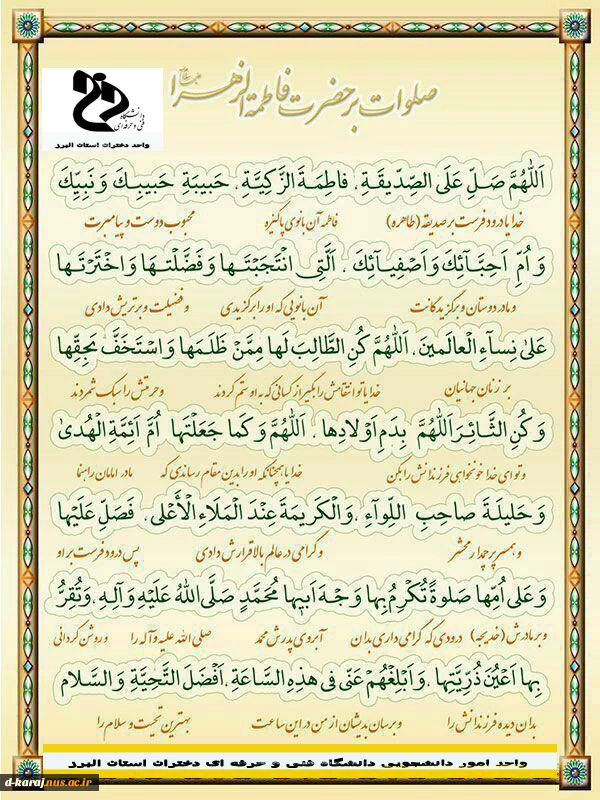 صلوات بر حضرت فاطمة الزهرا
دانشگاه
فنی و حرفه ای
واحد دختران استان البرز
اَللّٰهُمَّ صَلِّ عَلَى الصِّدّیقَةِ . فاطِمَةَ الزَّكِيَّةِ . حَبيبَةِ حَبيبِكَ وَ نَبِيِّكَ
خدایا درود فرست بر صدیقه (طاهره) فاطمه آن بانوی پاکیزه محبوب دوست و پیامبرت
وَ اُمِّ اَحِبَّآئِكَ وَ اَصْفِيآئِكَ . اَلَّتِى انْتَجَبْتَها وَ فَضَّلْتَها وَ اخْتَرْتَها
و مادر دوستان و برگزیدگانت آن بانویی که او را برگزیدی و فضیلت و برتریش دادی
عَلىٰ نِسآءِ الْعالَمينَ . اَللّٰهُمَّ كُنِ الطّالِبَ لَها مِمَّنْ ظَلَمَها وَ اسْتَخَفَّ بِحَقِّها
بر زنان جهانیان خدایا تو انتقامش را بگیر از کسانی که به او ستم کردند و حرمتش را سبک شمردند
وَ كُنِ الثّائِرَ اَللّٰهُمَّ بِدَمِ اَوْلادِها . اَللّٰهُمَّ وَ كَما جَعَلْتَها اُمَّ اَئِمَّةِ الْهُدىٰ
و تو ای خدا خونخواهی فرزندانش را بکن خدایا همچنانکه او را بدین مقام رساندی که مادر امامان راهنما
وَ حَليلَةَ صاحِبِ اللِّوآءِ . وَ الْكَريمَةَ عِنْدَ الْمَلَاءِ الْأَعْلى . فَصَلِّ عَلَيْها
و همسر پرچمدار محشر و گرامی در عالم بالا قرارش دادی پس درود فرست بر او
وَ عَلى اُمِّها صَلوةً تُكْرِمُ بِها وَجْهَ اَبيها مُحَمَّدٍ صَلَّى اللهُ عَلَيْهِ وَ آلِهِ . وَ تُقِرُّ
و بر مادرش (خدیجه) درودی که گرامی داری بدان آبروی پدرش محمد صلی الله علیه و آله را و روشن گردانی
بِها اَعْيُنَ ذُرِّيَّتِها . وَ اَبْلِغْهُمْ عَنّى فى هذِهِ السّاعَةِ . اَفْضَلَ التَّحِيَّةِ وَ السَّلام
بدان دیده فرزندانش را و برسان بدیشان از من در این ساعت بهترین تحیت و سلام را
واحد امور دانشجویی دانشگاه فنی و حرفه ای دختران استان البرز
d-karaj.nus.ac.ir